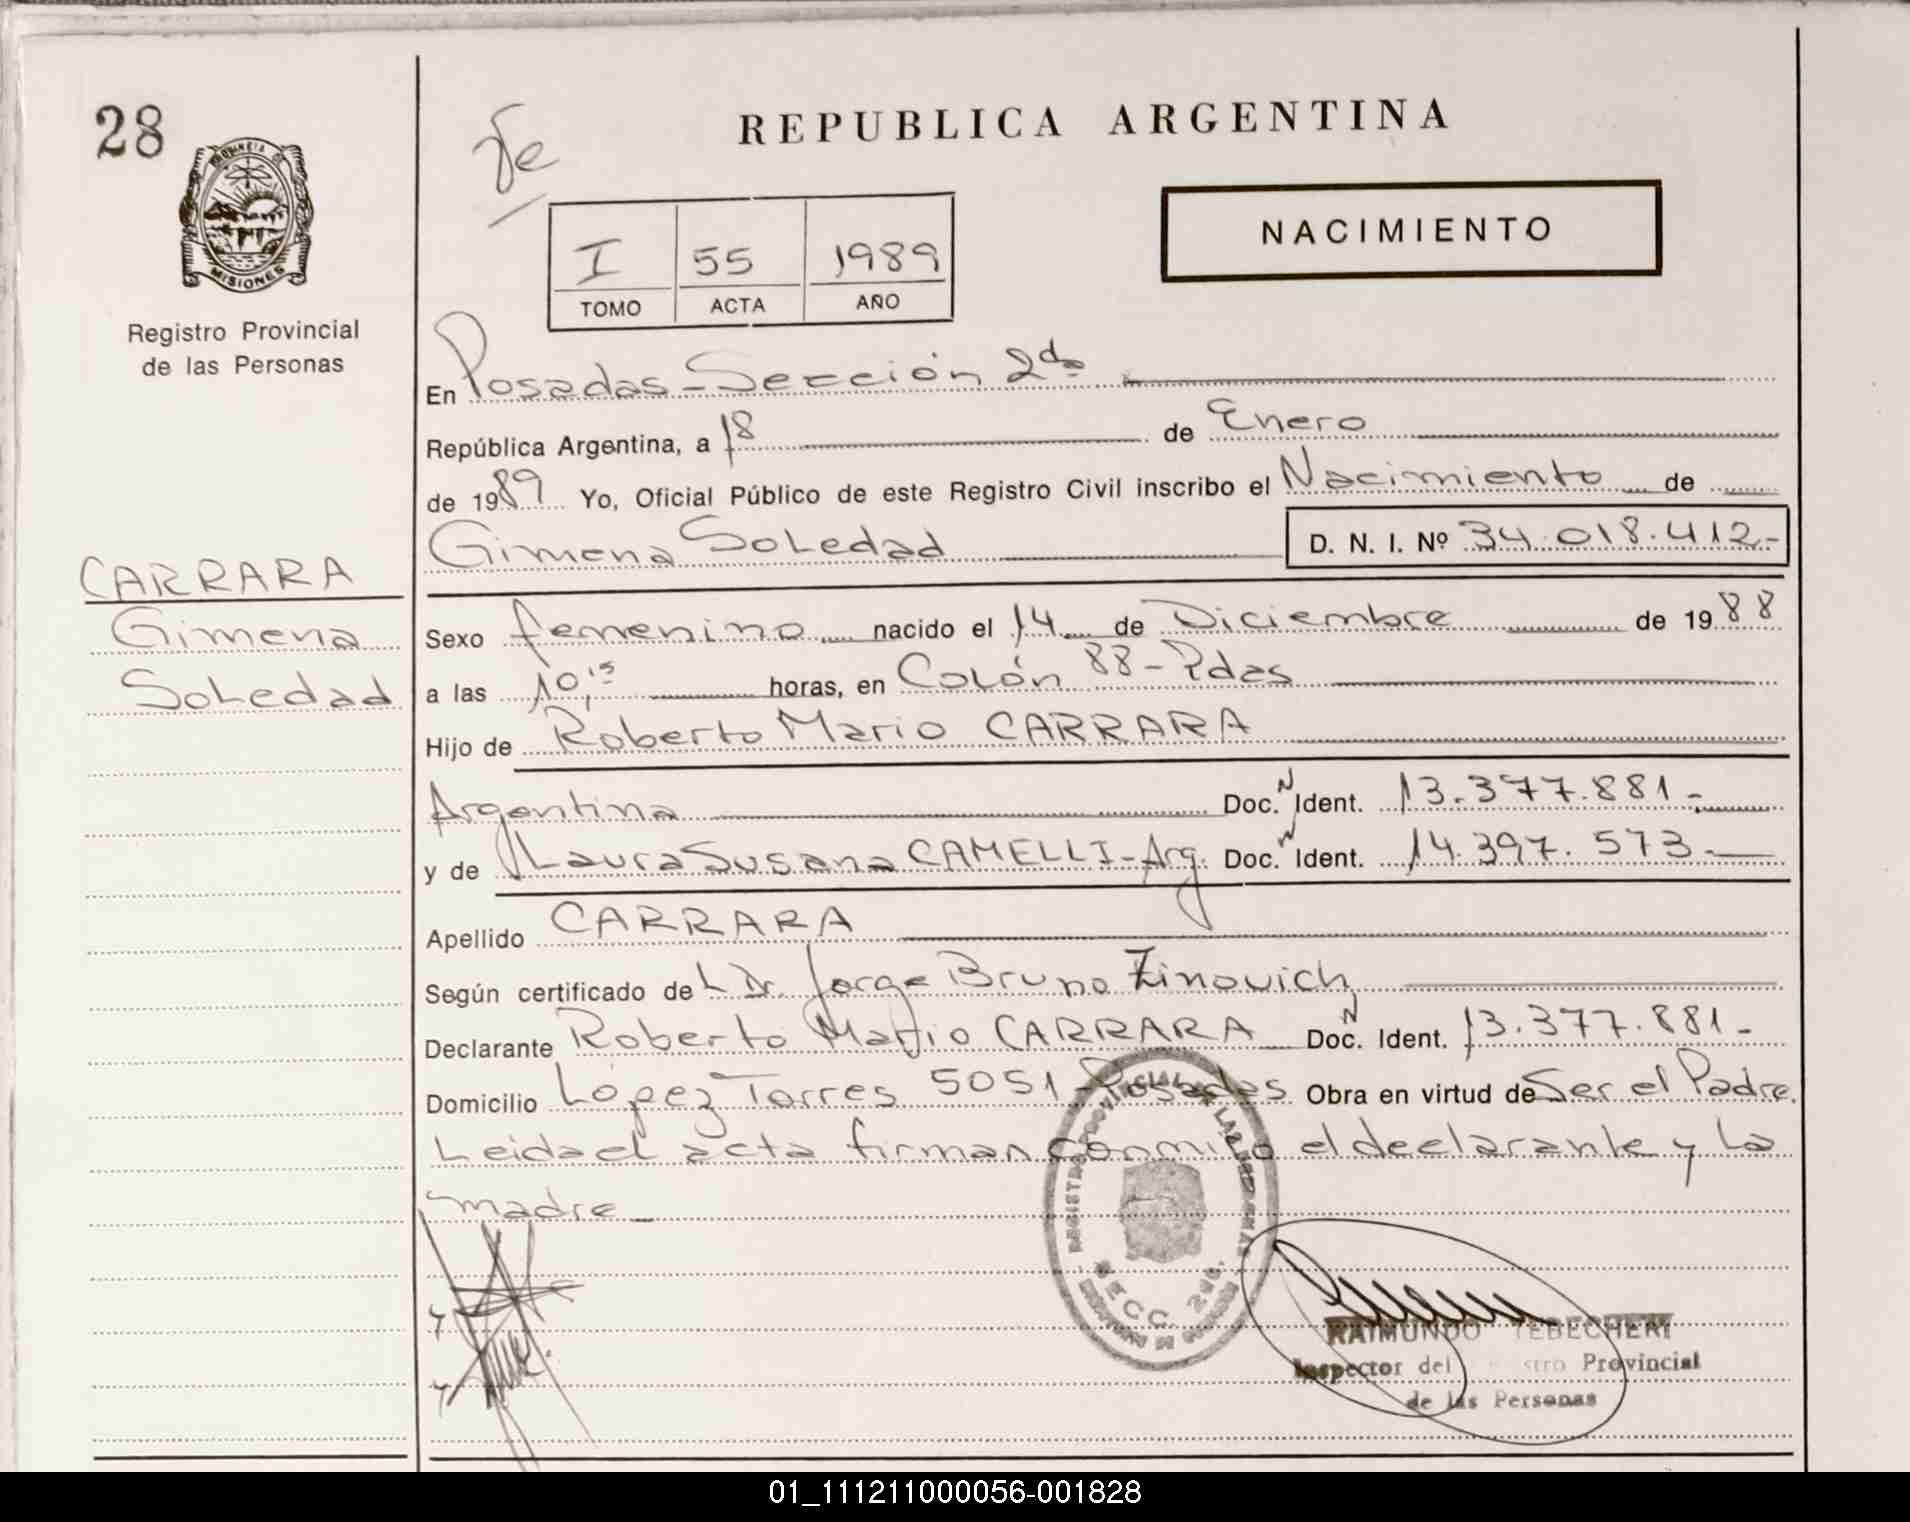 28
PROVINCIA DE
MISIONES
Registro Provincial
de las Personas
CARRARA
Gimena
Soledad
REPUBLICA ARGENTINA
NACIMIENTO
I 55 1989
TOMO ACTA AÑO
En Posadas - Sección 2da
República Argentina, a 18 de Enero
de 1989 Yo, Oficial Público de este Registro Civil inscribo el Nacimiento de
Gimena Soledad D. N. I. Nº 34.018.412-
Sexo femenino nacido el 14 de Diciembre de 1988
a las 10,15 horas, en Colón 88 - Pdas
Hijo de Roberto Mario CARRARA
Argentina Doc. N Ident. 13.377.881-
y de Laura Susana CAMELLI - Arg. Doc. N Ident. 14.397.573-
Apellido CARRARA
Según certificado de Dr. Jorge Bruno Zinovich
Declarante Roberto Mario CARRARA Doc. N Ident. 13.377.881-
Domicilio López Torres 5051 - Posadas Obra en virtud de Ser el Padre.
Leida el acta firman conmigo el declarante y la
madre -
REGISTRO PROVINCIAL DE LAS PERSONAS
SECC. 2da.
RAIMUNDO TEBECHERI
Inspector del Registro Provincial
de las Personas
01_111211000056-001828